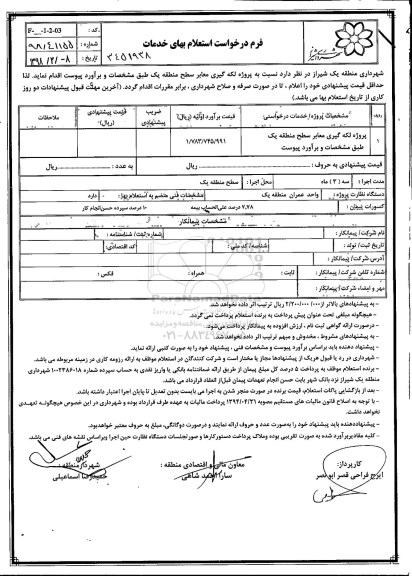 فرم درخواست استعلام بهای خدمات
کد: F-__-1-2-03
شماره: ۹۸/۴۱۱۵۵
تاریخ: ۳۹۸/۱۲/۰۸
۳۴۵۱۹۳۸
شهرداری منطقه یک شیراز در نظر دارد نسبت به پروژه لکه گیری معابر سطح منطقه یک طبق مشخصات و برآورد پیوست اقدام نماید. لذا
حداقل قیمت پیشنهادی خود را اعلام ، تا در صورت صرفه و صلاح شهرداری ، برابر مقررات اقدام گردد. (آخرین مهلت قبول پیشنهادات دو روز
کاری از تاریخ استعلام بها می باشد)
مشخصات پروژه/ خدمات درخواستی: قیمت برآورد اولیه (ریال) ضریب پیشنهادی قیمت پیشنهادی (ریال) ملاحظات
۱ پروژه لکه گیری معابر سطح منطقه یک طبق مشخصات و برآورد پیوست ۱/۷۸۳/۷۴۵/۹۹۱
قیمت پیشنهادی به حروف : ریال به عدد : ریال
مدت اجرا : سه ( ۳ ) ماه محل اجرا : سطح منطقه یک
دستگاه نظارت پروژه : واحد عمران منطقه یک مشخصات فنی منضم به استعلام بهاء: دارد
کسورات پیمان : ۷.۷۸ درصد علی الحساب بیمه ۱۰ درصد سپرده حسن انجام کار
مشخصات پیمانکار
نام شرکت/ پیمانکار : شماره ثبت/ شناسنامه :
تاریخ ثبت/ تولد : شناسه/ کد ملی : کد اقتصادی:
آدرس شرکت/ پیمانکار :
شماره تلفن شرکت/ پیمانکار : ثابت : همراه : فکس :
مهر و امضاء شرکت/ پیمانکار:
- به پیشنهادهای بالاتر از ۲/۲۰۰/۰۰۰/۰۰۰ ریال ترتیب اثر داده نمی شود.
- هیچگونه مبلغی تحت عنوان پیش پرداخت به برنده استعلام پرداخت نمی گردد.
- درصورت ارائه گواهی ثبت نام ، ارزش افزوده به پیمانکار پرداخت می‌شود.
- به پیشنهادهای مشروط ، مخدوش و مبهم ترتیب اثر داده نخواهد شد.
- پیشنهاد دهنده باید براساس برآورد پیوست و مشخصات فنی ، پیشنهاد خود را به صورت کتبی ارائه نماید.
- شهرداری در رد یا قبول هریک از پیشنهادها مجاز یا مختار است و شرکت کنندگان در استعلام موظف به ارائه رزومه کاری در زمینه مربوطه می باشد.
- برنده استعلام موظف به پرداخت ۵ درصد کل مبلغ پیمان از طریق ارائه ضمانتنامه بانکی یا واریز نقدی به حساب شماره ۱۰۰۲۳۸۶۰۱۸ شهرداری
منطقه یک شیراز نزد بانک شهر بابت حسن انجام تعهدات پیمان قبل از انعقاد قرارداد می باشد.
- بعد از بازگشایی پاکات استعلام، قیمت برنده در صورت منجر شدن به اجرا می بایست بدون تعدیل تا پایان اجرا اعتبار داشته باشد.
- با توجه به اصلاح قانون مالیات های مستقیم مصوبه ۱۳۹۴/۰۴/۳۱ پرداخت مالیات به عهده طرف قرارداد بوده و شهرداری در این خصوص هیچگونه تعهدی
نخواهد داشت.
- پیشنهاددهنده باید پیشنهاد خود را به صورت عدد و حروف ارائه نمایند و درصورت دوگانگی، مبلغ به حروف معتبر خواهد بود.
- کلیه مقادیر برآورد شده به صورت تقریبی بوده وملاک پرداخت دستورکارها و صورتجلسات دستگاه نظارت حین اجرا وبراساس نقشه های فنی می باشد.
کارپرداز: معاون مالی و اقتصادی منطقه : شهردار منطقه :
ایرج فراحی قصر ابونصر سارا احمد شاهی حمیدرضا اسماعیلی